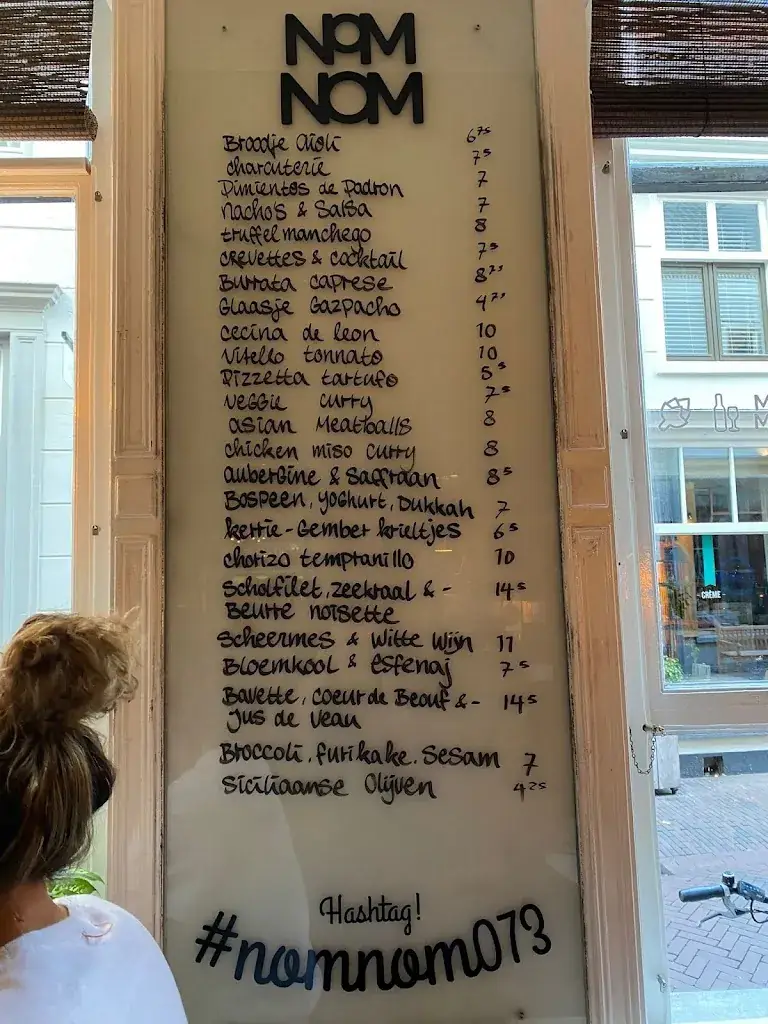 NOM
NOM
Broodje Aioli 6⁷⁵
charcuterie 7⁵
Pimientos de Padron 7
Nacho's & Salsa 7
truffel manchego 8
crevettes & cocktail 7⁵
Burrata caprese 8²⁵
Glaasje Gazpacho 4²⁵
cecina de leon 10
Vitello tonnato 10
Pizzetta tartufo 5⁵
veggie curry 7⁵
asian Meatballs 8
chicken miso curry 8
aubergine & Saffraan 8⁵
Bospeen, yoghurt, Dukkah 7
kerrie-Gember krieltjes 6⁵
chorizo tempranillo 10
Scholfilet, zeekraal & - 14⁵
Beurre noisette
Scheermes & Witte Wijn 11
Bloemkool & esfenaj 7⁵
Bavette, coeur de Beouf & - 14⁵
Jus de Veau
Broccoli, furikake, Sesam 7
Siciliaanse Olijven 4²⁵
Hashtag!
#nomnom073
CRÈME